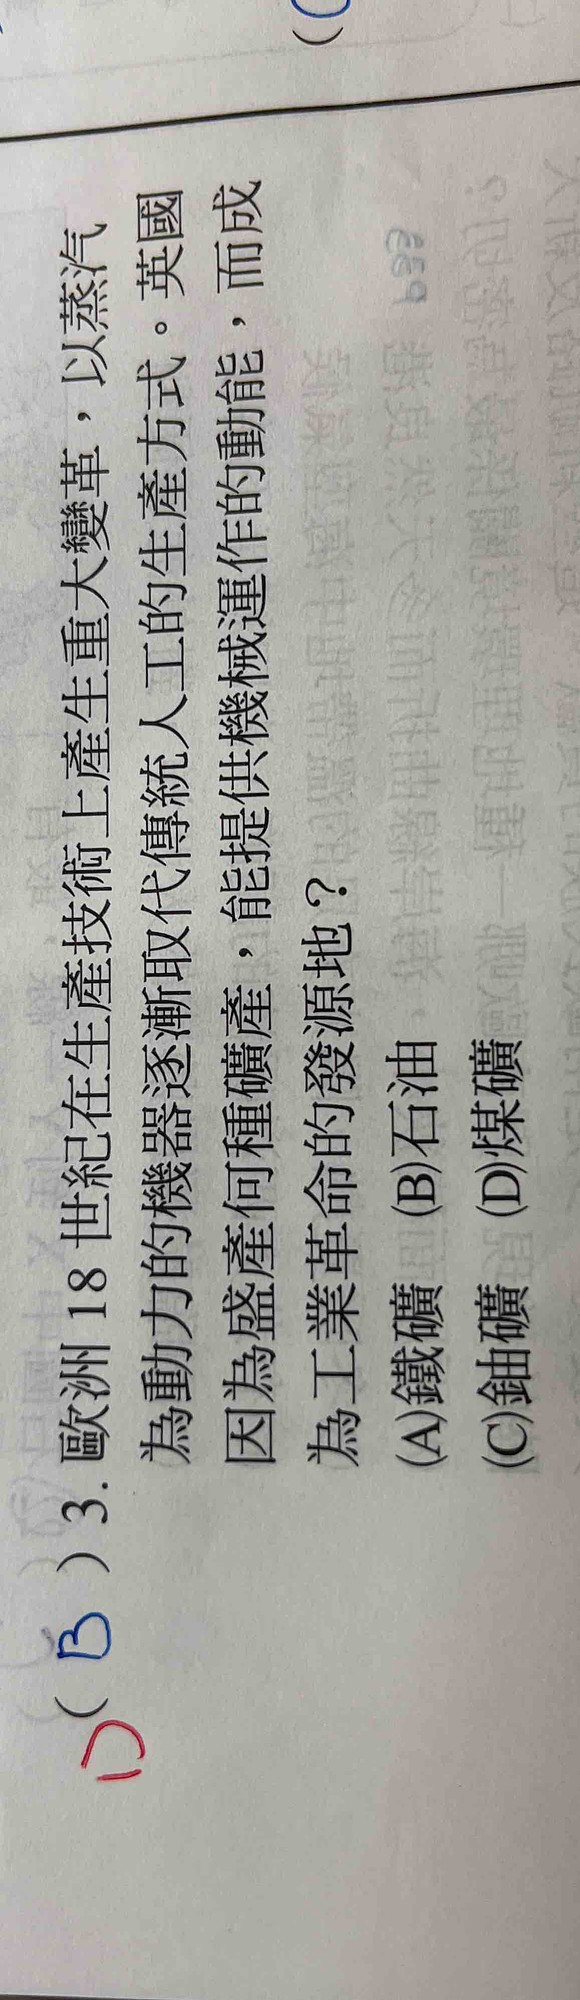 D( B )3. 歐洲18世紀在生產技術上產生重大變革，以蒸汽
為動力的機器逐漸取代傳統人工的生產方式。英國
因為盛產何種礦產，能提供機械運作的動能，而成
為工業革命的發源地？
(A)鐵礦 (B)石油
(C)鈾礦 (D)煤礦